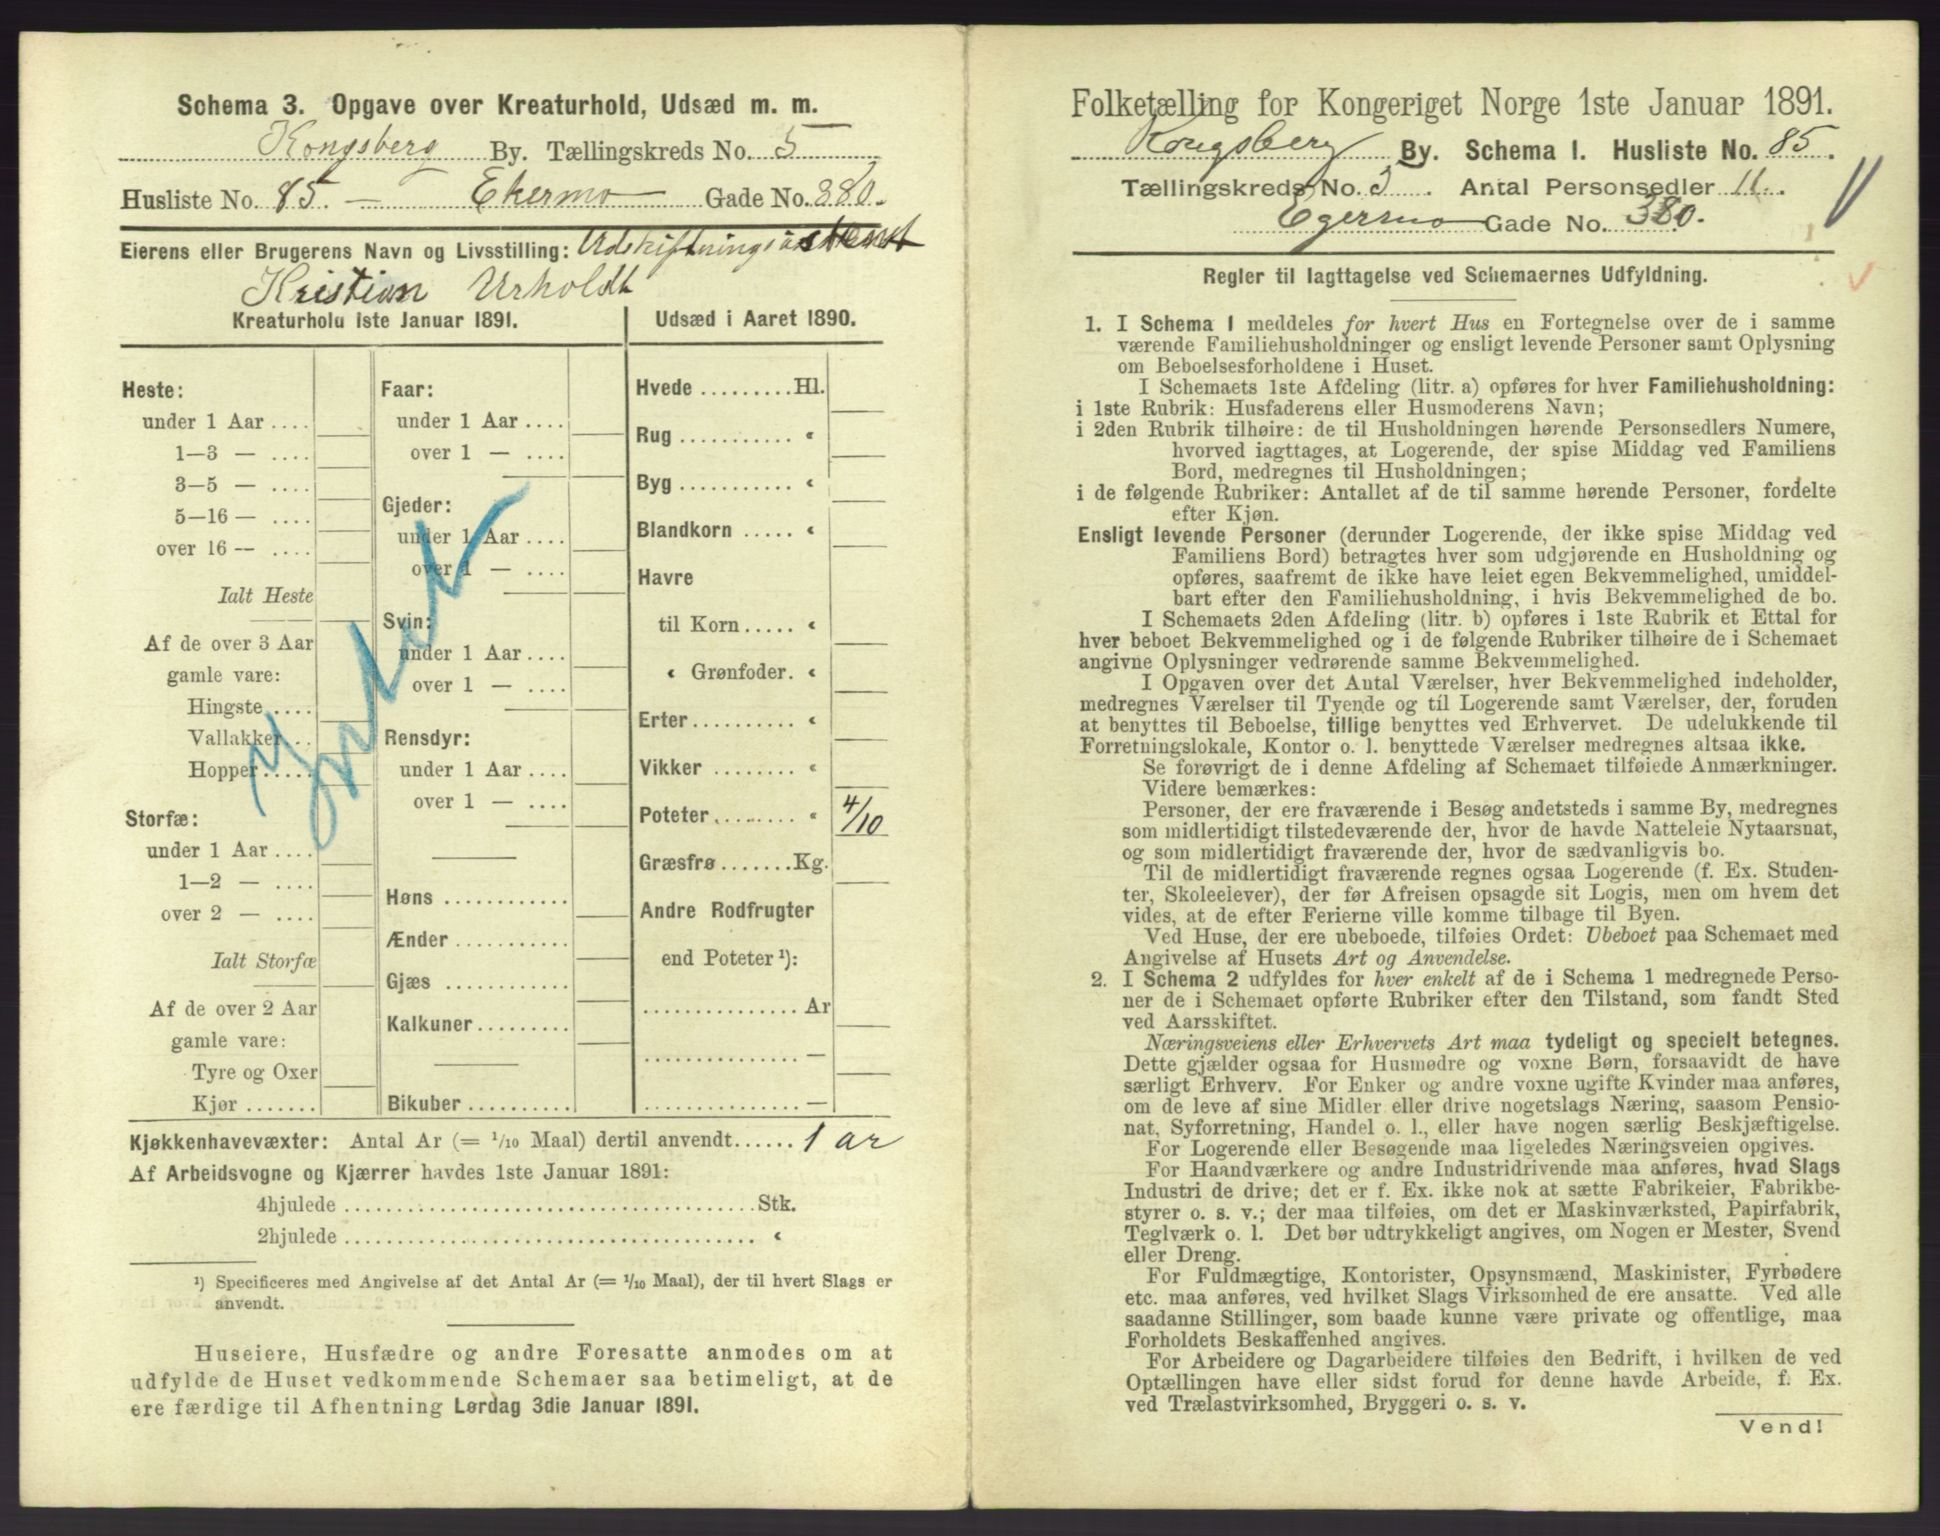 Schema 3. Opgave over Kreaturhold, Udsæd m. m.
Kongsberg By. Tællingskreds No. 5
Husliste No. 85. — Ekermo — Gade No. 380.
Eierens eller Brugerens Navn og Livsstilling: Udskiftningsassistent
Kristian Urholdt
Kreaturhold 1ste Januar 1891.
Heste:
under 1 Aar ....
1—3 — ....
3—5 — ....
5—16 — ....
over 16 — ....
Ialt Heste
Af de over 3 Aar
gamle vare:
Hingste ....
Vallakker ..
Hopper .....
Storfæ:
under 1 Aar ....
1—2 — ....
over 2 — ....
Ialt Storfæ
Af de over 2 Aar
gamle vare:
Tyre og Oxer
Kjør .......
Faar:
under 1 Aar ....
over 1 — ....
Gjeder:
under 1 Aar ....
over 1 — ....
Svin:
under 1 Aar ....
over 1 — ....
Rensdyr:
under 1 Aar ....
over 1 — ....
Høns ............
Ænder ...........
Gjæs ............
Kalkuner .........
Bikuber ..........
Udsæd i Aaret 1890.
Hvede ......... Hl.
Rug ........... "
Byg ........... "
Blandkorn ..... "
Havre
til Korn ..... "
" Grønfoder. "
Erter .......... "
Vikker ........ "
Poteter ........ " 4/10
Græsfrø ....... Kg.
Andre Rodfrugter
end Poteter ¹):
............... Ar
............... —
............... —
Kjøkkenhavevæxter: Antal Ar (= 1/10 Maal) dertil anvendt ...... 1 ar
Af Arbeidsvogne og Kjærrer havdes 1ste Januar 1891:
4hjulede ........................................ Stk.
2hjulede ........................................ "
¹) Specificeres med Angivelse af det Antal Ar (= 1/10 Maal), der til hvert Slags er
anvendt.
Huseiere, Husfædre og andre Foresatte anmodes om at
udfylde de Huset vedkommende Schemaer saa betimeligt, at de
ere færdige til Afhentning Lørdag 3die Januar 1891.
Folketælling for Kongeriget Norge 1ste Januar 1891.
Kongsberg By. Schema 1. Husliste No. 85.
Tællingskreds No. 5. Antal Personsedler 11.
Egersmo Gade No. 380.
Regler til Iagttagelse ved Schemaernes Udfyldning.
1. I Schema 1 meddeles for hvert Hus en Fortegnelse over de i samme
værende Familiehusholdninger og ensligt levende Personer samt Oplysning
om Beboelsesforholdene i Huset.
I Schemaets 1ste Afdeling (litr. a) opføres for hver Familiehusholdning:
i 1ste Rubrik: Husfaderens eller Husmoderens Navn;
i 2den Rubrik tilhøire: de til Husholdningen hørende Personsedlers Numere,
hvorved iagttages, at Logerende, der spise Middag ved Familiens
Bord, medregnes til Husholdningen;
i de følgende Rubriker: Antallet af de til samme hørende Personer, fordelte
efter Kjøn.
Ensligt levende Personer (derunder Logerende, der ikke spise Middag ved
Familiens Bord) betragtes hver som udgjørende en Husholdning og
opføres, saafremt de ikke have leiet egen Bekvemmelighed, umiddel-
bart efter den Familiehusholdning, i hvis Bekvemmelighed de bo.
I Schemaets 2den Afdeling (litr. b) opføres i 1ste Rubrik et Ettal for
hver beboet Bekvemmelighed og i de følgende Rubriker tilhøire de i Schemaet
angivne Oplysninger vedrørende samme Bekvemmelighed.
I Opgaven over det Antal Værelser, hver Bekvemmelighed indeholder,
medregnes Værelser til Tyende og til Logerende samt Værelser, der, foruden
at benyttes til Beboelse, tillige benyttes ved Erhvervet. De udelukkende til
Forretningslokale, Kontor o. l. benyttede Værelser medregnes altsaa ikke.
Se forøvrigt de i denne Afdeling af Schemaet tilføiede Anmærkninger.
Videre bemærkes:
Personer, der ere fraværende i Besøg andetsteds i samme By, medregnes
som midlertidigt tilstedeværende der, hvor de havde Natteleie Nytaarsnat,
og som midlertidigt fraværende der, hvor de sædvanligvis bo.
Til de midlertidigt fraværende regnes ogsaa Logerende (f. Ex. Studen-
ter, Skoleelever), der før Afreisen opsagde sit Logis, men om hvem det
vides, at de efter Ferierne ville komme tilbage til Byen.
Ved Huse, der ere ubeboede, tilføies Ordet: Ubeboet paa Schemaet med
Angivelse af Husets Art og Anvendelse.
2. I Schema 2 udfyldes for hver enkelt af de i Schema 1 medregnede Perso-
ner de i Schemaet opførte Rubriker efter den Tilstand, som fandt Sted
ved Aarsskiftet.
Næringsveiens eller Erhvervets Art maa tydeligt og specielt betegnes.
Dette gjælder ogsaa for Husmødre og voxne Børn, forsaavidt de have
særligt Erhverv. For Enker og andre voxne ugifte Kvinder maa anføres,
om de leve af sine Midler eller drive nogetslags Næring, saasom Pensio-
nat, Syforretning, Handel o. l., eller have nogen særlig Beskjæftigelse.
For Logerende eller Besøgende maa ligeledes Næringsveien opgives.
For Haandværkere og andre Industridrivende maa anføres, hvad Slags
Industri de drive; det er f. Ex. ikke nok at sætte Fabrikeier, Fabrikbe-
styrer o. s. v.; der maa tilføies, om det er Maskinværksted, Papirfabrik,
Teglværk o. l. Det bør udtrykkeligt angives, om Nogen er Mester, Svend
eller Dreng.
For Fuldmægtige, Kontorister, Opsynsmænd, Maskinister, Fyrbødere
etc. maa anføres, ved hvilket Slags Virksomhed de ere ansatte. Ved alle
saadanne Stillinger, som baade kunne være private og offentlige, maa
Forholdets Beskaffenhed angives.
For Arbeidere og Dagarbeidere tilføies den Bedrift, i hvilken de ved
Optællingen have eller sidst forud for denne havde Arbeide, f. Ex.
ved Trælastvirksomhed, Bryggeri o. s. v.
Vend!